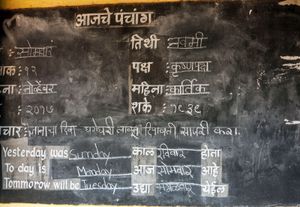 आजचे पंचांग
: सोमवार तिथी नवमी
ाक : १२ पक्ष कृष्णपक्ष
ना : नोव्हेंबर महिना कार्तिक
: २०१७ शके : १९३९
चार :
Yesterday was Sunday काल रविवार होता
To day is Monday आज सोमवार आहे
Tommorow will be Tuesday उद्या मंगळवार येईल